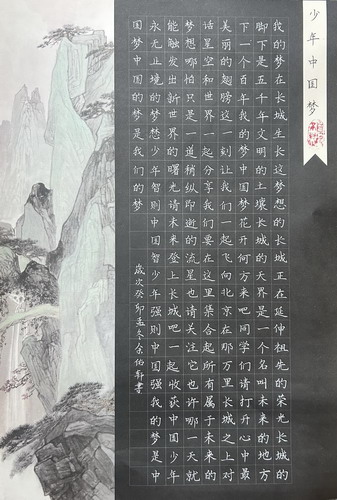 少年中国梦
我的梦在长城生长这梦想的长城正在延伸祖先的荣光长城的
脚下是五千年文明的土壤长城的天界是一个名叫未来的地方
下一个百年我的梦中国梦花开何方来吧同学们请打开心中最
美丽的翅膀这一刻让我们一起飞向北京在那万里长城之上对
话星空和世界一起分享我们要在这里集合起所有属于未来的
梦想哪怕只是一道稍纵即逝的流星也请关注它也许哪一天就
能触发出新世界的曙光请未来登上长城吧一起收获中国少年
永无止境的梦想少年智则中国智少年强则中国强我的梦是中
国梦中国的梦是我们的梦
歲次癸卯孟冬余佑軒書